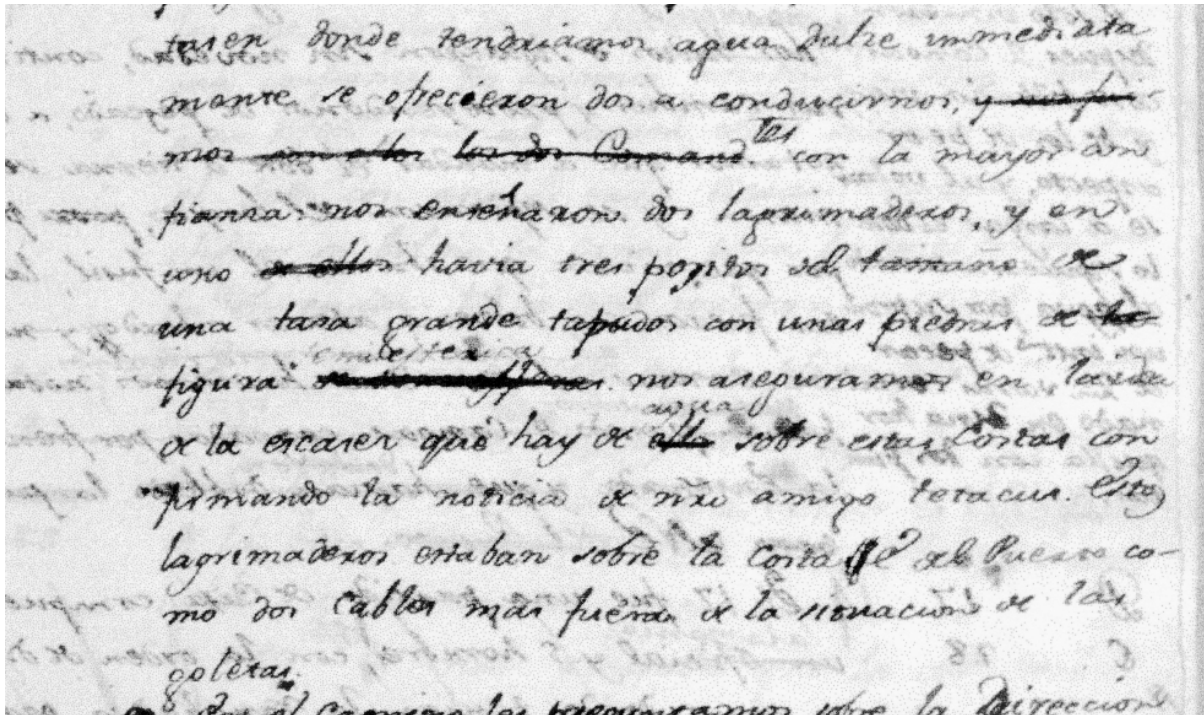 tasen donde tendriamos agua dulze immediata
mente se ofrecieron dos a conducirnos, y nos fui
mos con ellos los dos Comand.tes con la mayor con
fianza nos enseñaron dos lagrimaderos, y en
uno de ellos havia tres positos del tamaño de
una tasa grande tapados con unas piedras de
figura emisferica nos aseguramos en la idea
de la escases que hay de ella agua sobre estas Costas con
firmando la noticia de nro amigo tetacus. Estos
lagrimaderos estaban sobre la Costa del Puerto co-
mo dos Cables mas fuera de la situacion de las
goletas.
En el Camino les preguntamos sobre la Direccion